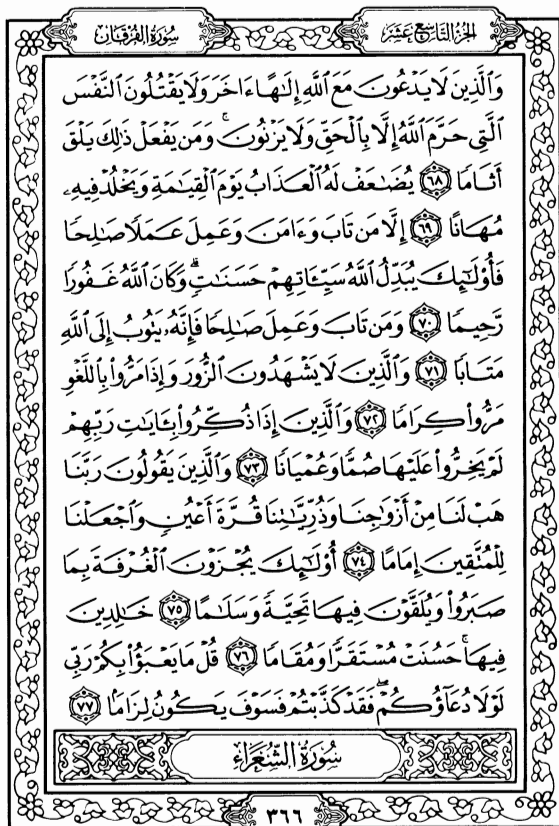 سُورَةُ الفُرْقَان
الجُزْءُ التَّاسِعَ عَشَرَ
وَٱلَّذِينَ لَا يَدْعُونَ مَعَ ٱللَّهِ إِلَٰهًا ءَاخَرَ وَلَا يَقْتُلُونَ ٱلنَّفْسَ
ٱلَّتِي حَرَّمَ ٱللَّهُ إِلَّا بِٱلْحَقِّ وَلَا يَزْنُونَ ۚ وَمَن يَفْعَلْ ذَٰلِكَ يَلْقَ
أَثَامًا ٦٨ يُضَٰعَفْ لَهُ ٱلْعَذَابُ يَوْمَ ٱلْقِيَٰمَةِ وَيَخْلُدْ فِيهِۦ
مُهَانًا ٦٩ إِلَّا مَن تَابَ وَءَامَنَ وَعَمِلَ عَمَلًا صَٰلِحًا
فَأُوْلَٰٓئِكَ يُبَدِّلُ ٱللَّهُ سَيِّـَٔاتِهِمْ حَسَنَٰتٍ ۗ وَكَانَ ٱللَّهُ غَفُورًا
رَّحِيمًا ٧٠ وَمَن تَابَ وَعَمِلَ صَٰلِحًا فَإِنَّهُۥ يَتُوبُ إِلَى ٱللَّهِ
مَتَابًا ٧١ وَٱلَّذِينَ لَا يَشْهَدُونَ ٱلزُّورَ وَإِذَا مَرُّواْ بِٱللَّغْوِ
مَرُّواْ كِرَامًا ٧٢ وَٱلَّذِينَ إِذَا ذُكِّرُواْ بِـَٔايَٰتِ رَبِّهِمْ
لَمْ يَخِرُّواْ عَلَيْهَا صُمًّا وَعُمْيَانًا ٧٣ وَٱلَّذِينَ يَقُولُونَ رَبَّنَا
هَبْ لَنَا مِنْ أَزْوَٰجِنَا وَذُرِّيَّٰتِنَا قُرَّةَ أَعْيُنٍ وَٱجْعَلْنَا
لِلْمُتَّقِينَ إِمَامًا ٧٤ أُوْلَٰٓئِكَ يُجْزَوْنَ ٱلْغُرْفَةَ بِمَا
صَبَرُواْ وَيُلَقَّوْنَ فِيهَا تَحِيَّةً وَسَلَٰمًا ٧٥ خَٰلِدِينَ
فِيهَا ۚ حَسُنَتْ مُسْتَقَرًّا وَمُقَامًا ٧٦ قُلْ مَا يَعْبَؤُاْ بِكُمْ رَبِّي
لَوْلَا دُعَآؤُكُمْ ۖ فَقَدْ كَذَّبْتُمْ فَسَوْفَ يَكُونُ لِزَامًا ٧٧
سُورَةُ الشُّعَرَاءِ
٣٦٦